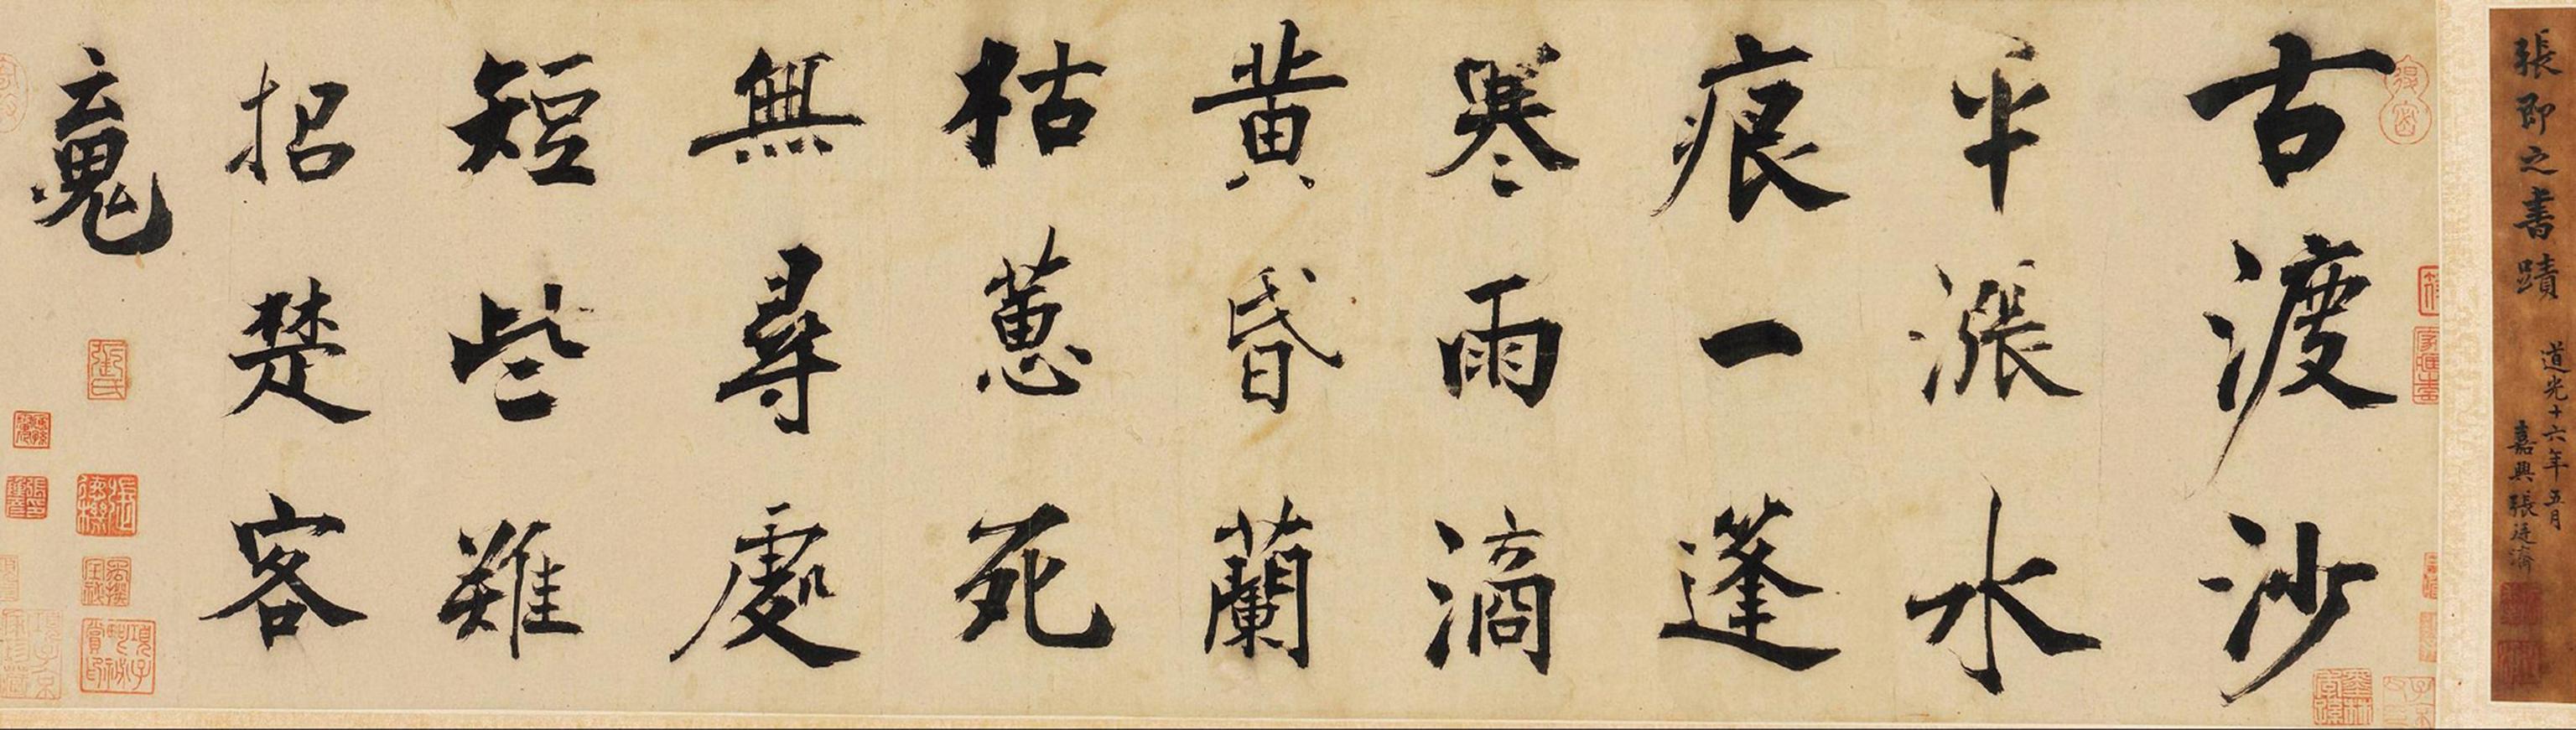 張即之書蹟
道光十六年五月
嘉興張廷濟
古渡沙
平漲水
痕一蓬
寒雨滴
黄昏蘭
枯蕙死
無尋處
短些難
招楚客
䰟